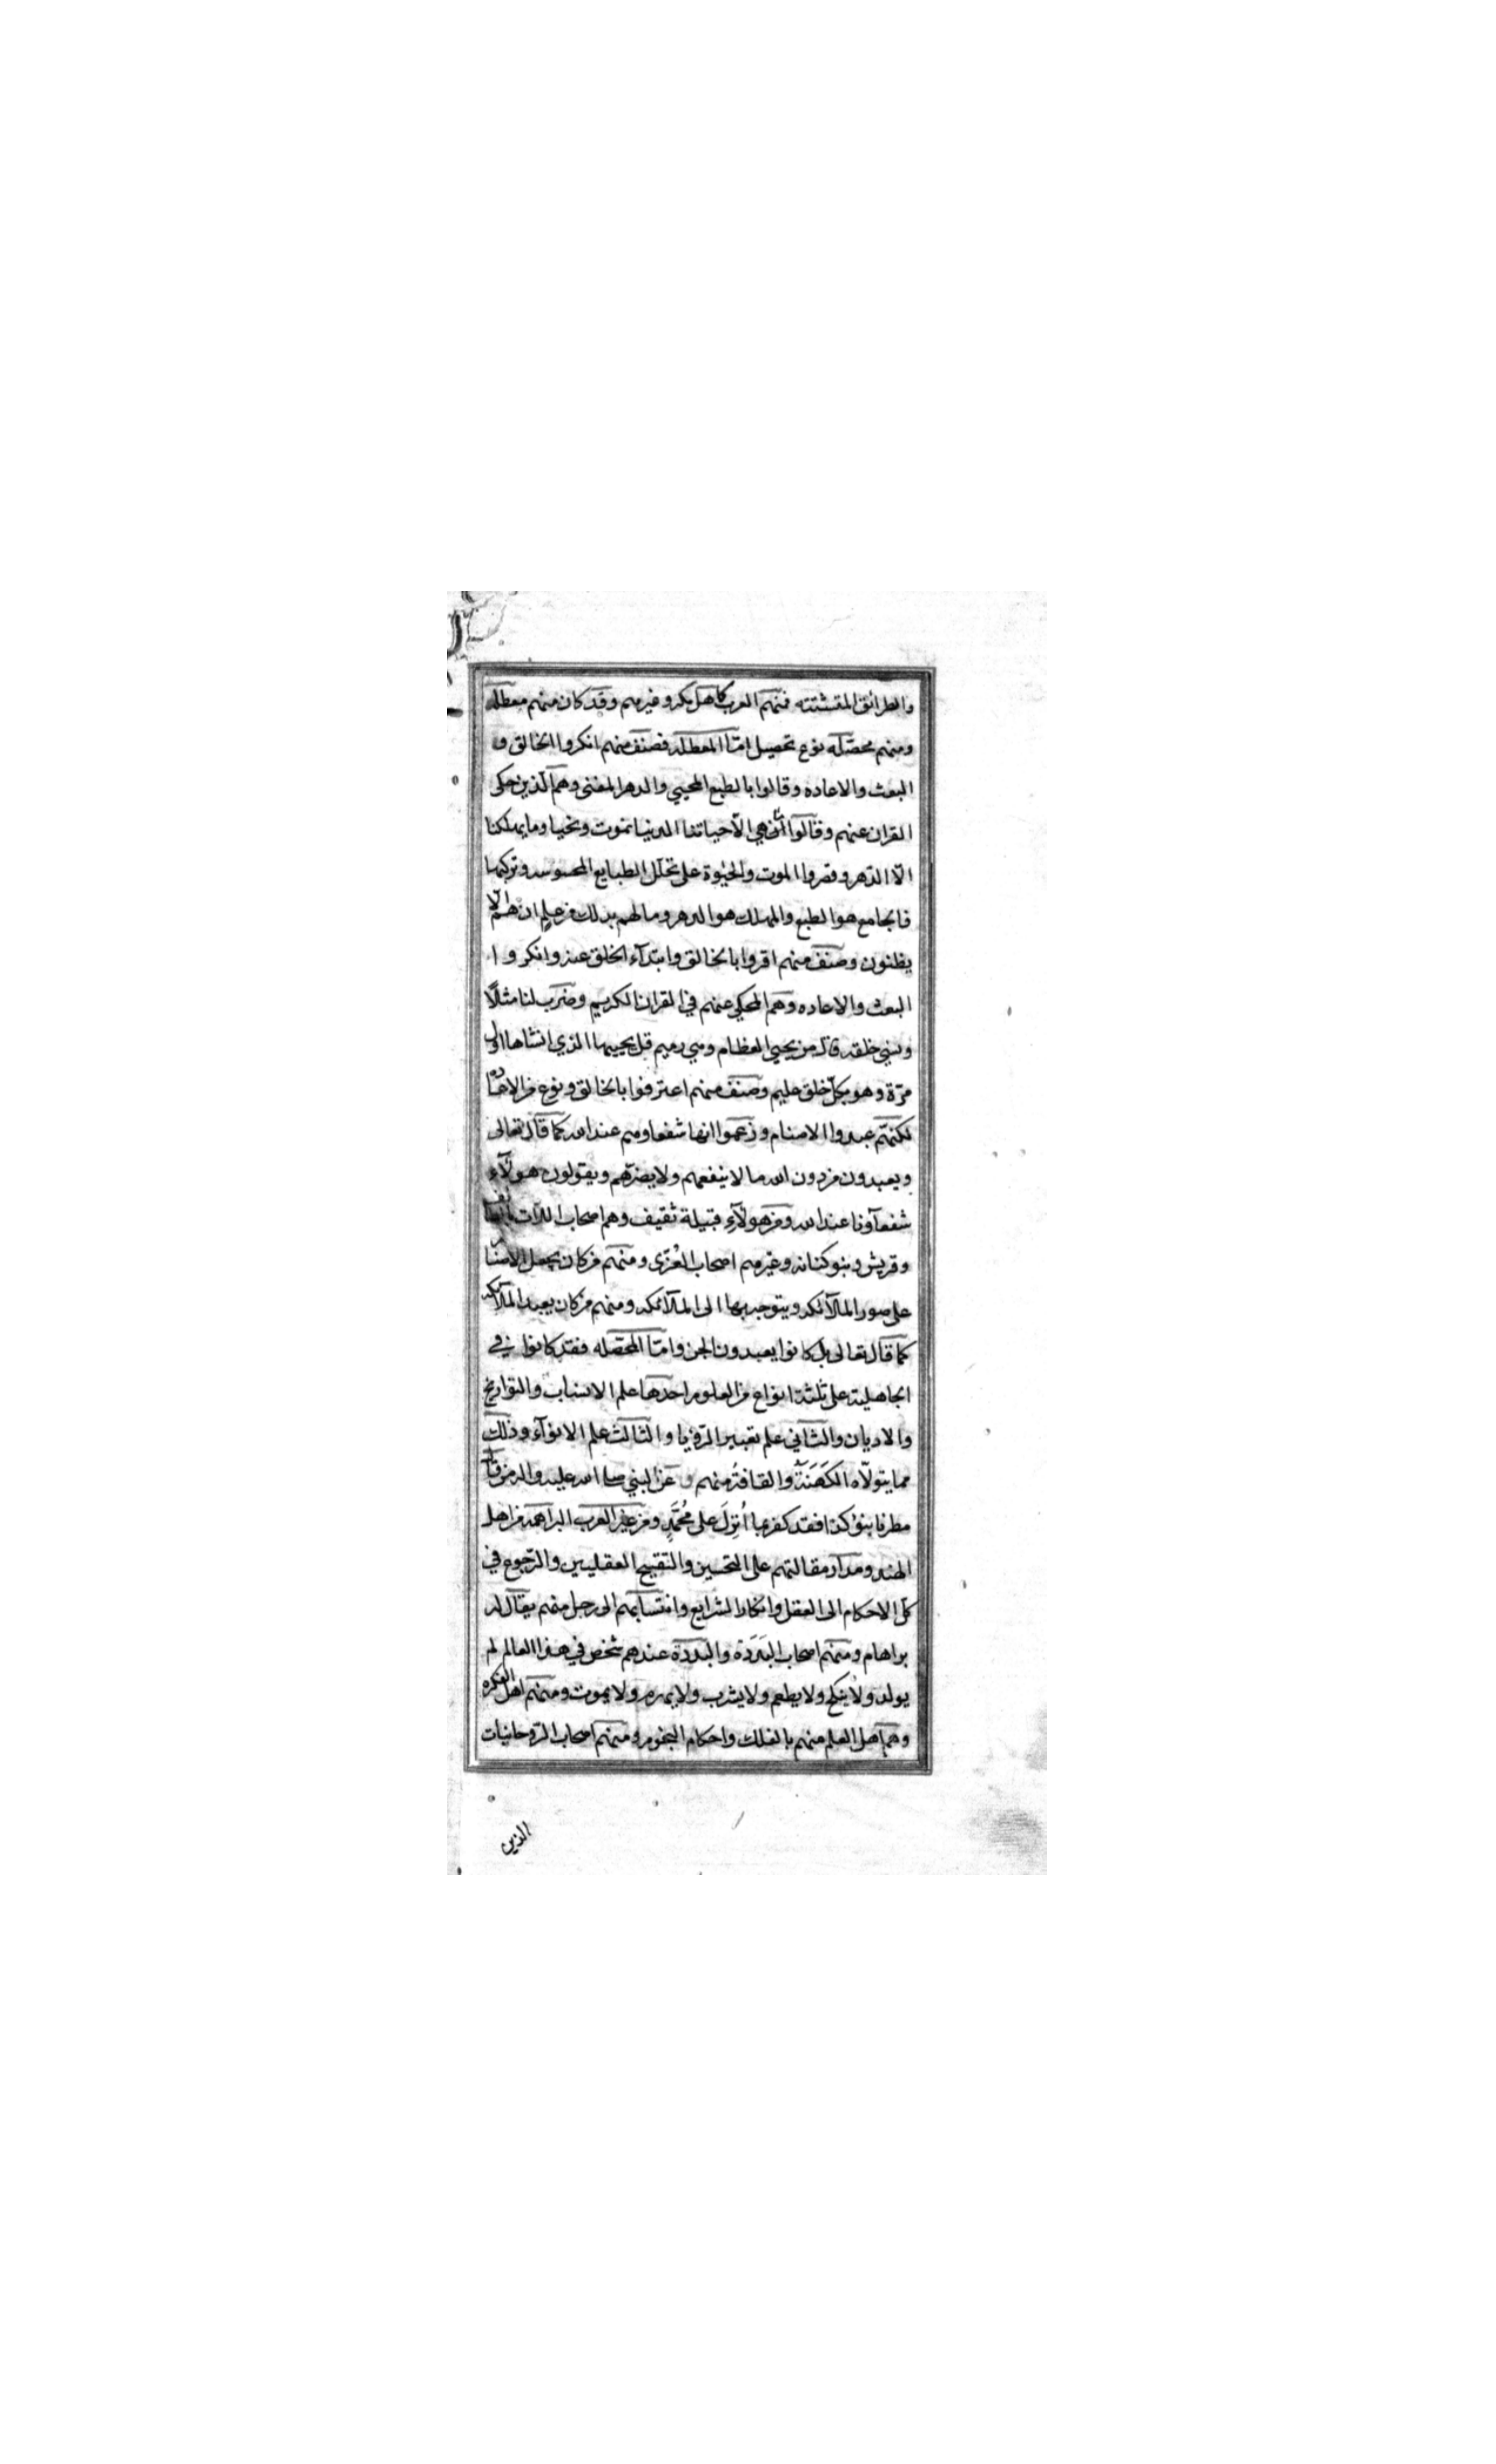 والطرائق المتشتته فمنهم العرب كاهل مكه وغيرهم وقد كان منهم معطله
ومنهم محصله نوع تحصيل امّا المعطله فصنف منهم انكروا الخالق و
البعث والاعاده وقالوا بالطبع المحيي والدهر المفني وهم الّذين حكى
القران عنهم وقالوا ان هي الّا حياتنا الدنيا نموت ونحيا وما يهلكنا
الّا الدّهر وقصروا الموت والحيوة على تحلل الطبايع المحسوسه وتركبها
فالجامع هو الطبع والمهلك هو الدهر وما لهم بذلك من علم ان هم الّا
يظنون وصنف منهم اقروا بالخالق وابتدآء الخلق عنه وانكروا
البعث والاعاده وهم المحكي عنهم في القران الكريم وضرب لنا مثلًا
ونسي خلقه قال من يحيي العظام وهي رميم قل يحييها الذي انشاها اول
مرّة وهو بكلّ خلق عليم وصنف منهم اعترفوا بالخالق ونوع من الاعاده
لكنهم عبدوا الاصنام وزعموا انها شفعاوهم عند الله كما قال تعالى
ويعبدون من دون الله ما لا ينفعهم ولا يضرّهم ويقولون هولآء
شفعآونا عند الله ومن هولآء قبيلة ثقيف وهم اصحاب اللات بالطائف
وقريش وبنو كنانه وغيرهم اصحاب العُزّى ومنهم من كان يجعل الاصنام
على صور الملآئكه ويتوجه بها الى الملآئكه ومنهم من كان يعبد الملآئكه
كما قال تعالى بل كانوا يعبدون الجن وامّا المحصّله فقد كانوا في
الجاهلية على ثلثة انواع من العلوم احدها علم الانساب والتواريخ
والاديان والثاني علم تعبير الرّؤيا والثالث علم الانوآء وذلك
مما يتولّاه الكَهَنَةُ والقافةُ منهم وعن النبي صلى الله عليه واله من قال
مطرنا بنؤ كذا فقد كفر بما أُنزِلَ على مُحمَّدٍ ومن غير العرب البراهمه من اهل
الهند ومدار مقالتهم على التحسين والتقبيح العقليين والرّجوع في
كلّ الاحكام الى العقل وانكار الشرايع وانتسابهم الى رجل منهم يقال له
براهام ومنهم اصحاب البَدَدَة والبددة عندهم شخص في هذا العالم لم
يولد ولا ينكح ولا يطعم ولا يشرب ولا يهرم ولا يموت ومنهم اهل الفكره
وهم اهل العلم منهم بالفلك واحكام النجوم ومنهم اصحاب الرّوحانيات
الذين